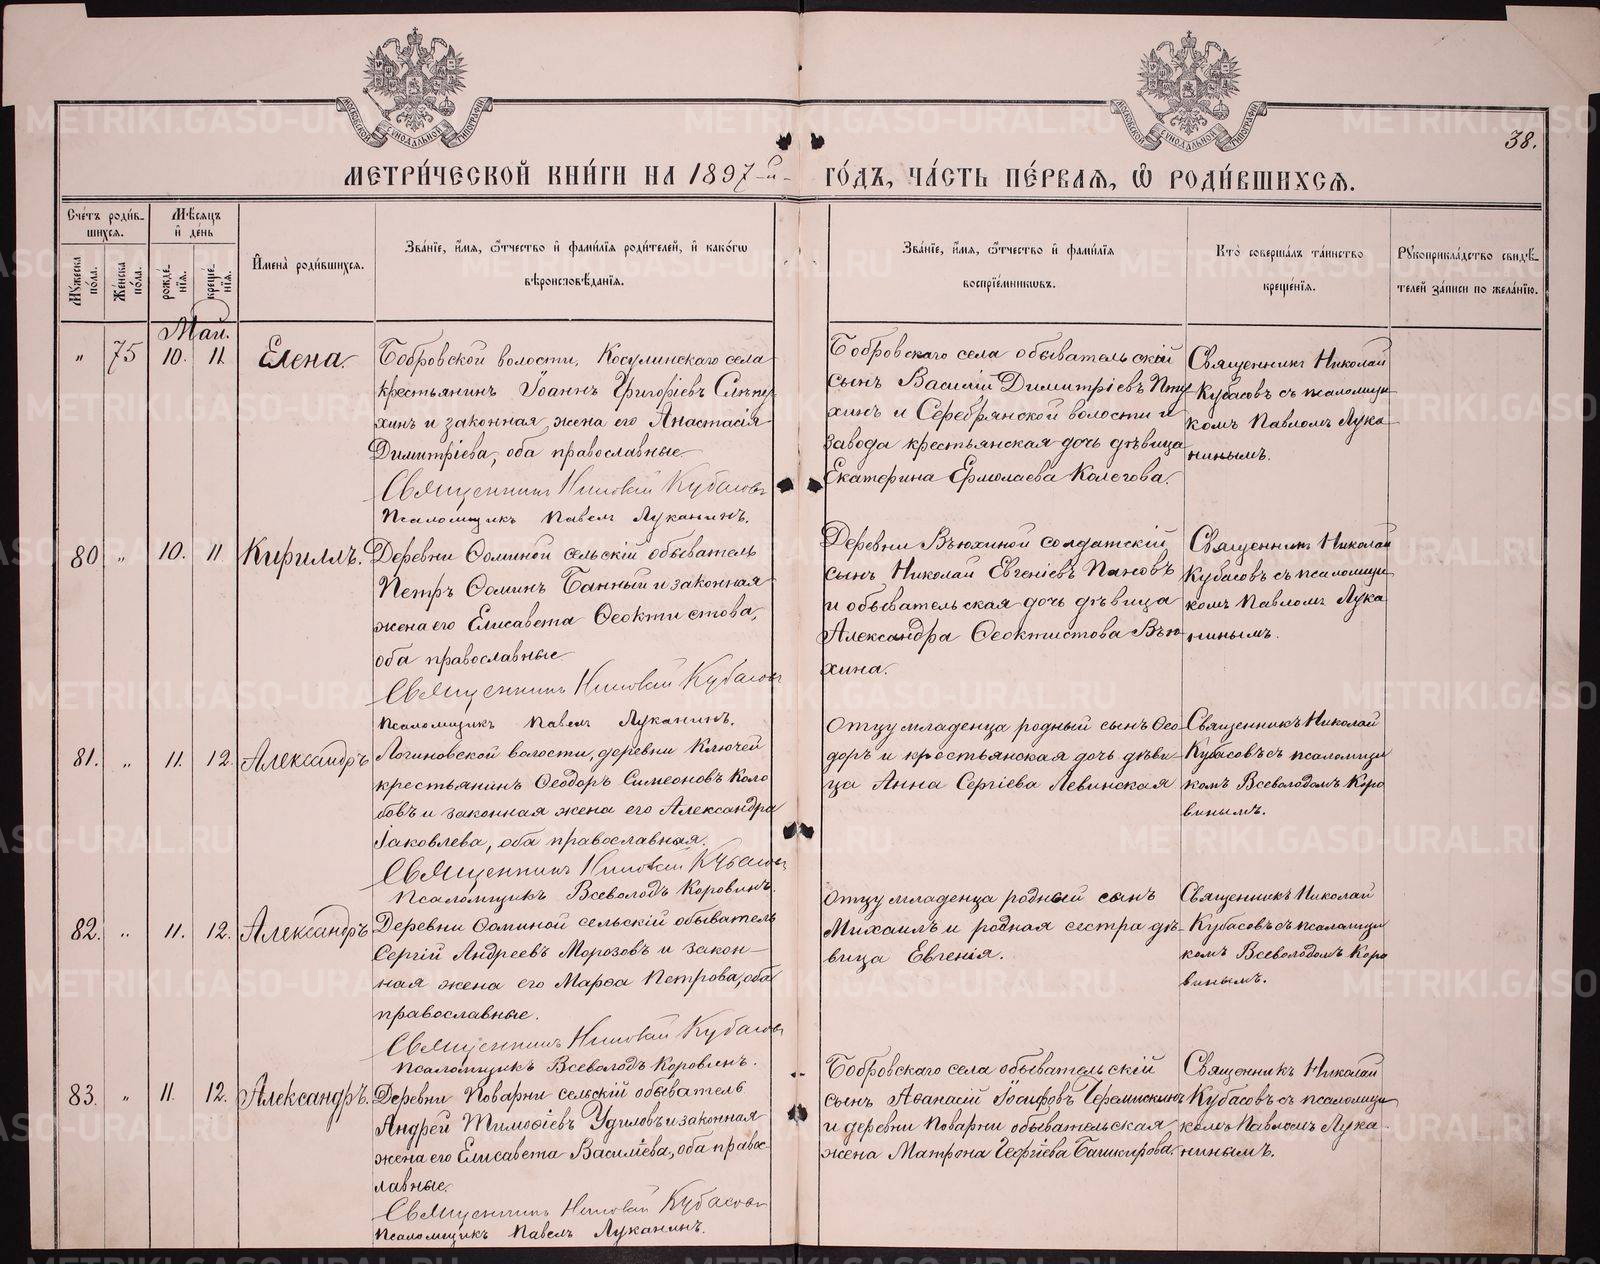 МОСКОВСКОЙ СУНОДАЛЬНОЙ ТИПОГРАФІИ
МОСКОВСКОЙ СУНОДАЛЬНОЙ ТИПОГРАФІИ
38.
МЕТРИ́ЧЕСКОЙ КНИ́ГИ НА 1897-й- ГО́ДЪ, ЧА́СТЬ ПЕ́РВАѦ, Ѡ РОДИ́ВШИХСѦ.
Сче́тъ роди́в-
шихсѧ.
Мѣ́сѧцъ
и҆ де́нь
Мꙋ́жеска по́ла.
Же́нска по́ла.
рожде́-
нїѧ.
креще́-
нїѧ.
И҆мена̀ роди́вшихсѧ.
Зва́нїе, и҆́мѧ, ѻ҆́тчество и҆ фами́лїѧ роди́телей, и҆ како́гѡ
вѣроисповѣ́данїѧ.
Зва́нїе, и҆́мѧ, ѻ҆́тчество и҆ фами́лїѧ
воспрїе́мникѡвъ.
Кто̀ соверша́лъ та́инство
креще́нїѧ.
Рꙋкоприкла́дство свидѣ́-
телей за́писи по жела́нїю.
Май.
" 75 10. 11. Елена.
Бобровской волости, Косулинскаго села
крестьянинъ Іоаннъ Григоріевъ Слѣпу-
хинъ и законная жена его Анастасія
Димитріева, оба православные
Священникъ Николай Кубасовъ
Псаломщикъ Павелъ Луканинъ.
Бобровскаго села обывательскій
сынъ Василій Димитріевъ Пту-
хинъ и Серебрянской волости и
завода крестьянская дочь дѣвица
Екатерина Ермолаева Колегова.
Священникъ Николай
Кубасовъ съ псаломщи
комъ Павломъ Лука
нинымъ.
80 " 10. 11 Кириллъ.
Деревни Ѳоминой сельскій обыватель
Петръ Ѳоминъ Банный и законная
жена его Елисавета Ѳеоктистова,
оба православные
Священникъ Николай Кубасовъ
Псаломщикъ Павелъ Луканинъ.
Деревни Вьюхиной солдатскій
сынъ Николай Евгеніевъ Пановъ
и обывательская дочь дѣвица
Александра Ѳеоктистова Вью
хина.
Священникъ Николай
Кубасовъ съ псаломщи
комъ Павломъ Лука
нинымъ.
81. " 11. 12. Александръ
Логиновской волости, деревни Ключей
крестьянинъ Ѳеодоръ Симеоновъ Коло
бовъ и законная жена его Александра
Іаковлева, оба православная.
Священникъ Николай Кубасовъ
Псаломщикъ Всеволодъ Коровинъ.
Отцу младенца родный сынъ Ѳео
доръ и крестьянская дочь дѣви-
ца Анна Сергіева Левинская
Священникъ Николай
Кубасовъ съ псаломщи
комъ Всеволодомъ Коро
винымъ.
82. " 11. 12. Александръ
Деревни Ѳоминой сельскій обыватель
Сергій Андреевъ Морозовъ и закон-
ная жена его Марѳа Петрова, оба
православные.
Священникъ Николай Кубасовъ
Псаломщикъ Всеволодъ Коровинъ.
Отцу младенца родный сынъ
Михаилъ и родная сестра дѣ-
вица Евгенія.
Священникъ Николай
Кубасовъ съ псаломщи
комъ Всеволодомъ Коро
винымъ.
83. " 11 12. Александръ.
Деревни Поварни сельскій обыватель
Андрей Тимоѳіевъ Удиловъ и законная
жена его Елисавета Василіева, оба право-
лавные.
Священникъ Николай Кубасовъ
Псаломщикъ Павелъ Луканинъ.
Бобровскаго села обывательскій
сынъ Аѳанасій Іосифовъ Черемискинъ
и деревни Поварни обывательская
жена Матрона Георгіева Башкирова.
Священникъ Николай
Кубасовъ съ псаломщи
комъ Павломъ Лука-
нинымъ.
METRIKI.GASO-URAL.RU